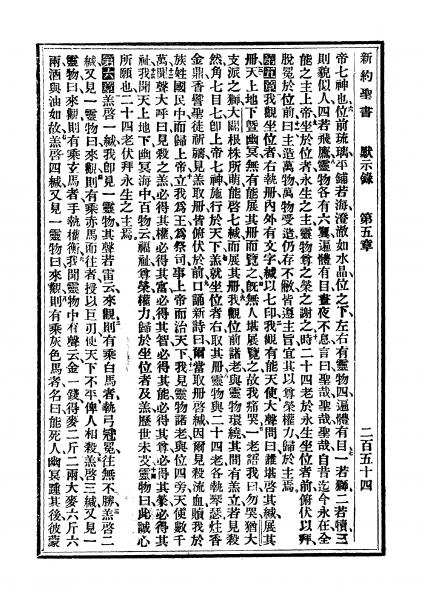 新約聖書　默示錄　第五章　二百五十四
帝七神也位前琉璃平鋪若海澄澈如水晶位之下左右有靈物四遍體有目一若獅二若犢三
則貌似人四若飛鷹靈物各有六翼遍體有目晝夜不息言曰聖哉聖哉聖哉自昔迄今永在全
能之主上帝坐於位者永生之主靈物尊之榮之謝之時二十四老於永生坐位者前俯伏以拜
脫冕於位前曰主造萬物萬物受造仍存不敝皆遵主旨宜其以尊榮權力歸於主焉
第五章我觀坐位者右執册內外有文字緘以七印我觀有能天使大聲問曰誰堪啓其緘展其
册天上地下曁幽冥無有能展其册而覽之旣無人堪展覽之故我痛哭一老語我曰勿哭猶大
支派之獅大闢根株所萌能啓七緘而展其册我觀位前諸老與靈物環繞其間有羔立若見殺
然角七目七卽上帝七神施行於天下羔就坐位者右取其册靈物與二十四老各執琴瑟炷香
金鼎香譬聖徒祈禱見羔取册皆俯伏於前口誦新詩曰爾當取册啓緘因爾見殺流血贖我於
族姓國民中而歸上帝立我爲王爲祭司事上帝而治天下我見靈物諸老與位四旁天使數千
萬聞聲大呼曰見殺之羔必得其權必得其富必得其智必得其能必得其尊必得其榮必得其
祉我聞天上地下幽冥海中百物云福祉尊榮權力歸於坐位者及羔歷世未艾靈物曰此誠心
所願也二十四老伏拜永生之主焉
第六章羔啓一緘我卽見一靈物其聲若雷云來觀則有乘白馬者執弓冠冕往無不勝羔啓二
緘又見一靈物曰來觀則有乘赤馬而往者授以巨刃使天下不平俾人相殺羔啓三緘又見一
靈物曰來觀則有乘玄馬者手執權衡我聞靈物中有聲云金一錢得麥二斤二兩大麥六斤六
兩酒與油如故羔啓四緘又見一靈物曰來觀則有乘灰色馬者名曰能死人幽冥踵其後彼蒙